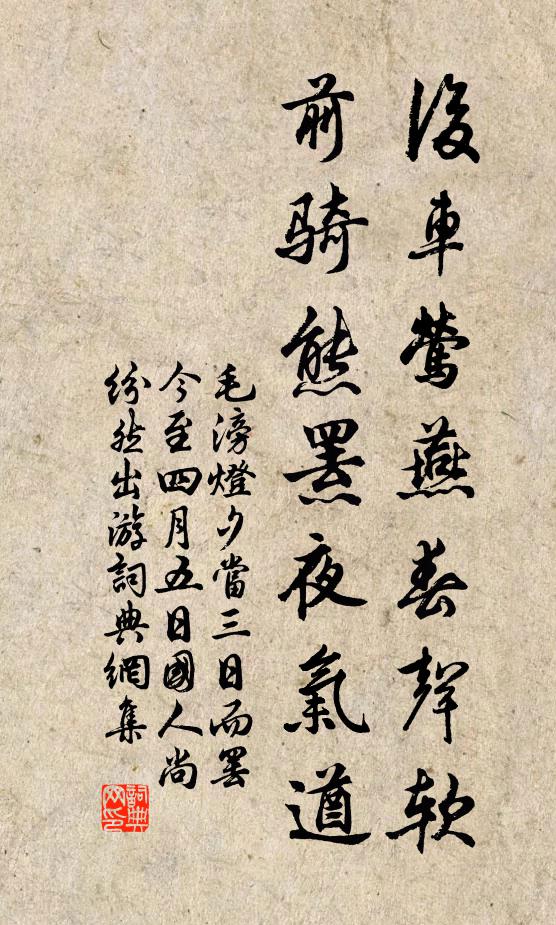 後車鶯燕春聲軟
前騎熊羆夜氣遒
毛滂燈夕當三日而罢
今至四月五日國人尚
紛然出游詞典網集
詞典
网印